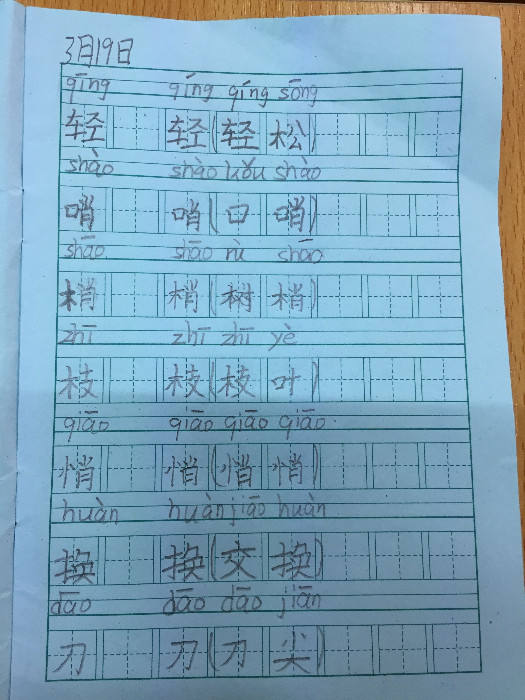 3月19日
qīng qīng qīng sōng
轻 轻(轻松)
shào shào kǒu shào
哨 哨(口哨)
shāo shāo shāo
梢 梢(树梢)
zhī zhī zhī yè
枝 枝(枝叶)
qiāo qiāo qiāo qiāo
悄 悄(悄悄)
huàn huàn jiāo huàn
换 换(交换)
dāo dāo dāo jiān
刀 刀(刀尖)